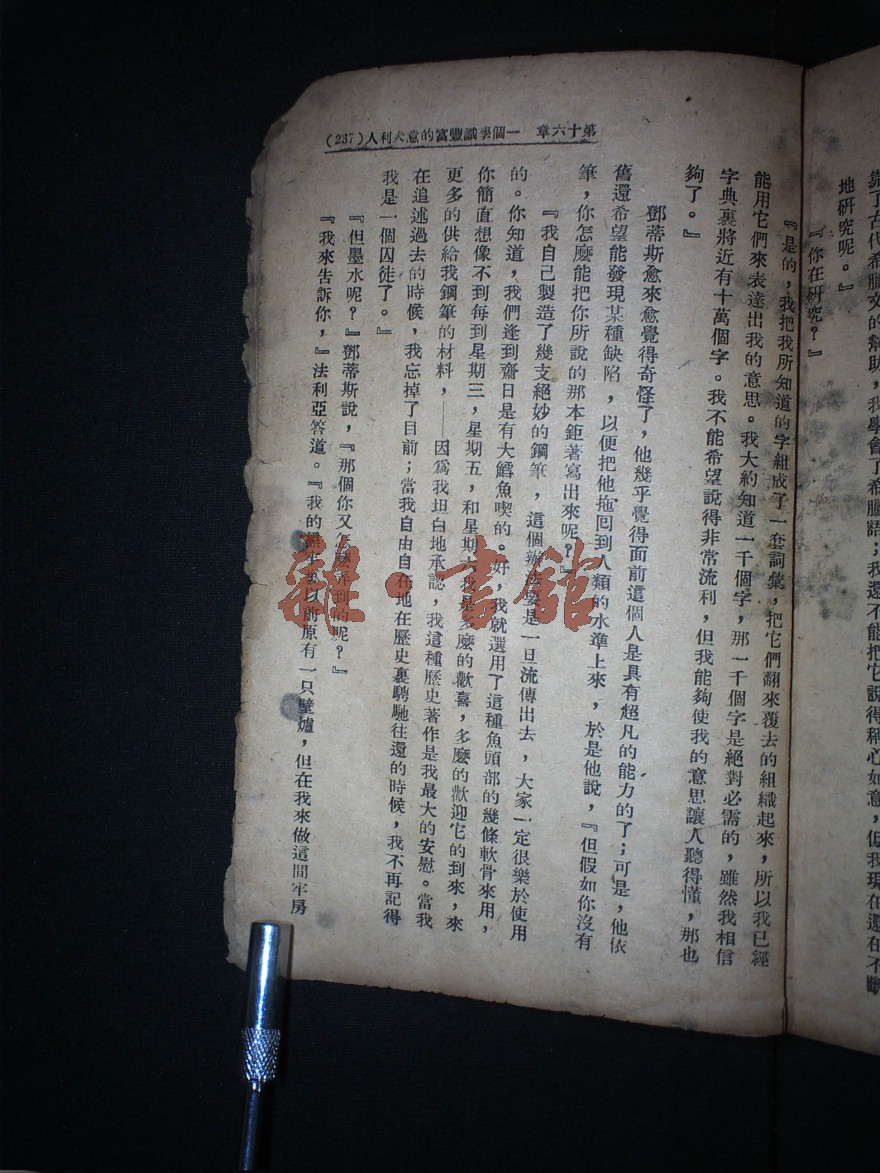 靠了古代希臘文的幫助，我學會了希臘語；我還不能把它說得稱心如意，但我現在還在不斷
地研究呢。』
『你在研究？』
『是的，我把我所知道的字組成了一套詞彙，把它們翻來覆去的組織起來，所以我已經
能用它們來表達出我的意思。我大約知道一千個字，那一千個字是絕對必需的，雖然我相信
字典裏將近有十萬個字。我不能希望說得非常流利，但我能夠使我的意思讓人聽得懂，那也
夠了。』
鄧蒂斯愈來愈覺得奇怪了，他幾乎覺得面前這個人是具有超凡的能力的了；可是，他依
舊還希望能發現某種缺陷，以便把他拖回到人類的水準上來，於是他說，『但假如你沒有
筆，你怎麼能把你所說的那本鉅著寫出來呢？』
『我自己製造了幾支絕妙的鋼筆，這個辦法要是一旦流傳出去，大家一定很樂於使用
的。你知道，我們逢到齋日是有大鱈魚喫的。好，我就選用了這種魚頭部的幾條軟骨來用，
你簡直想像不到每到星期三，星期五，和星期六我是多麼的歡喜，多麼的歡迎它的到來，來
更多的供給我鋼筆的材料，——因爲我坦白地承認，我這種歷史著作是我最大的安慰。當我
在追述過去的時候，我忘掉了目前；當我自由自在地在歷史裏騁馳往還的時候，我不再記得
我是一個囚徒了。』
『但墨水呢？』鄧蒂斯說，『那個你又弄到的呢？』
『我來告訴你，』法利亞答道。『我的以前原有一只壁爐，但在我來做這間牢房
第十六章 一個學識豐富的意大利人（237）
雜·書館